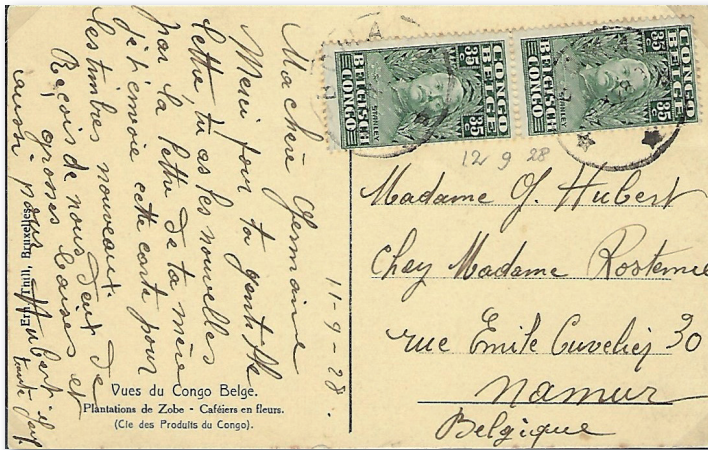 11-9-28.
Ma chère Germaine
Merci pour ta gentille
lettre, tu as les nouvelles
par la lettre de ta mère
je t'envoie cette carte pour
les timbres nouveaux.
Reçois de nous deux de
grosses baises et
aussi pour Hubert
Ern. Thill, Bruxelles
Vues du Congo Belge.
Plantations de Zobe - Caféiers en fleurs.
(Cie des Produits du Congo).
CONGO
BELGE
35c.
STANLEY
BELGISCH
CONGO
CONGO
BELGE
35c.
STANLEY
BELGISCH
CONGO
12 9 28
Madame J. Hubert
chez Madame Rostenne
rue Emile Cuvelier 30
Namur
Belgique